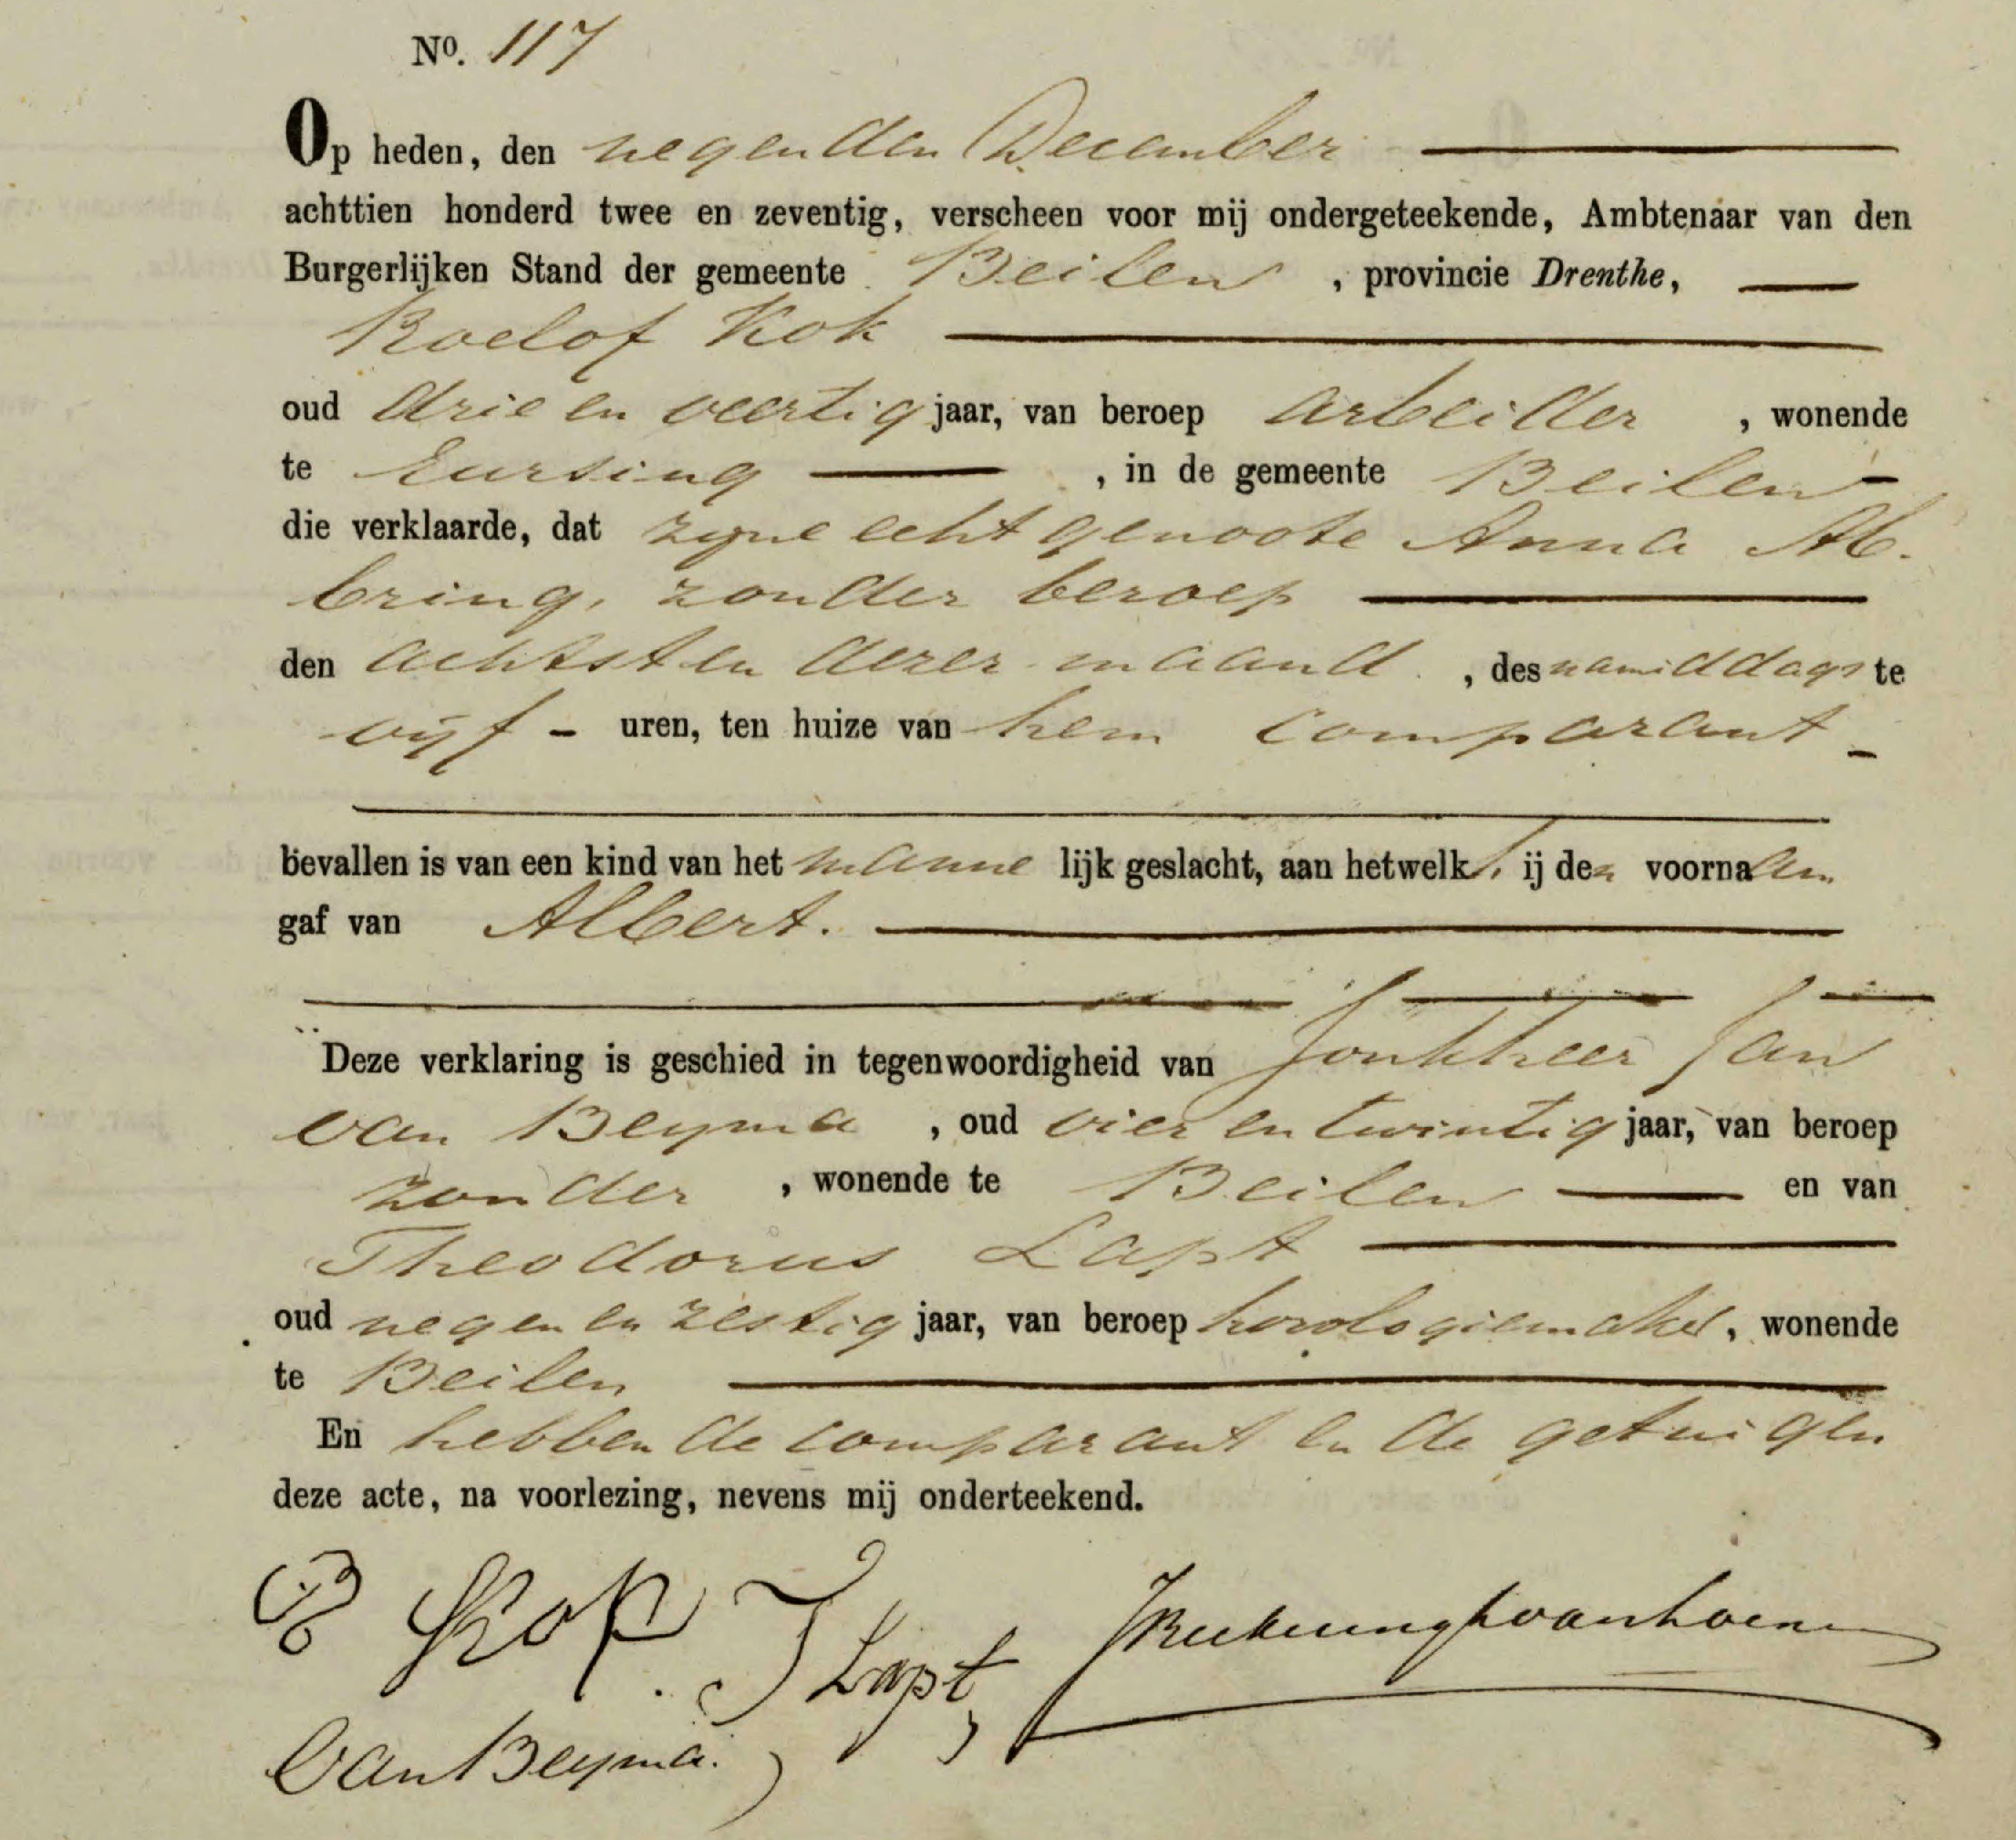 No. 117
Op heden, den negenden December
achttien honderd twee en zeventig, verscheen voor mij ondergeteekende, Ambtenaar van den
Burgerlijken Stand der gemeente Beilen, provincie Drenthe,
Roelof Kok
oud drie en veertig jaar, van beroep arbeider, wonende
te Eursing, in de gemeente Beilen
die verklaarde, dat zyne echtgenoote Anna Ab-
bring, zonder beroep
den achtsten dezer maand, des namiddags te
vyf - uren, ten huize van hem comparant
bevallen is van een kind van het mannelijk geslacht, aan hetwelk hij den voornaam
gaf van Albert.
Deze verklaring is geschied in tegenwoordigheid van Jonkheer Jan
van Beyma, oud vier en twintig jaar, van beroep
zonder, wonende te Beilen en van
Theodorus Lapt
oud negen en zestig jaar, van beroep horologiemaker, wonende
te Beilen
En hebben de comparant en de getuigen
deze acte, na voorlezing, nevens mij onderteekend.
R Kok T Lapt
van Beyma